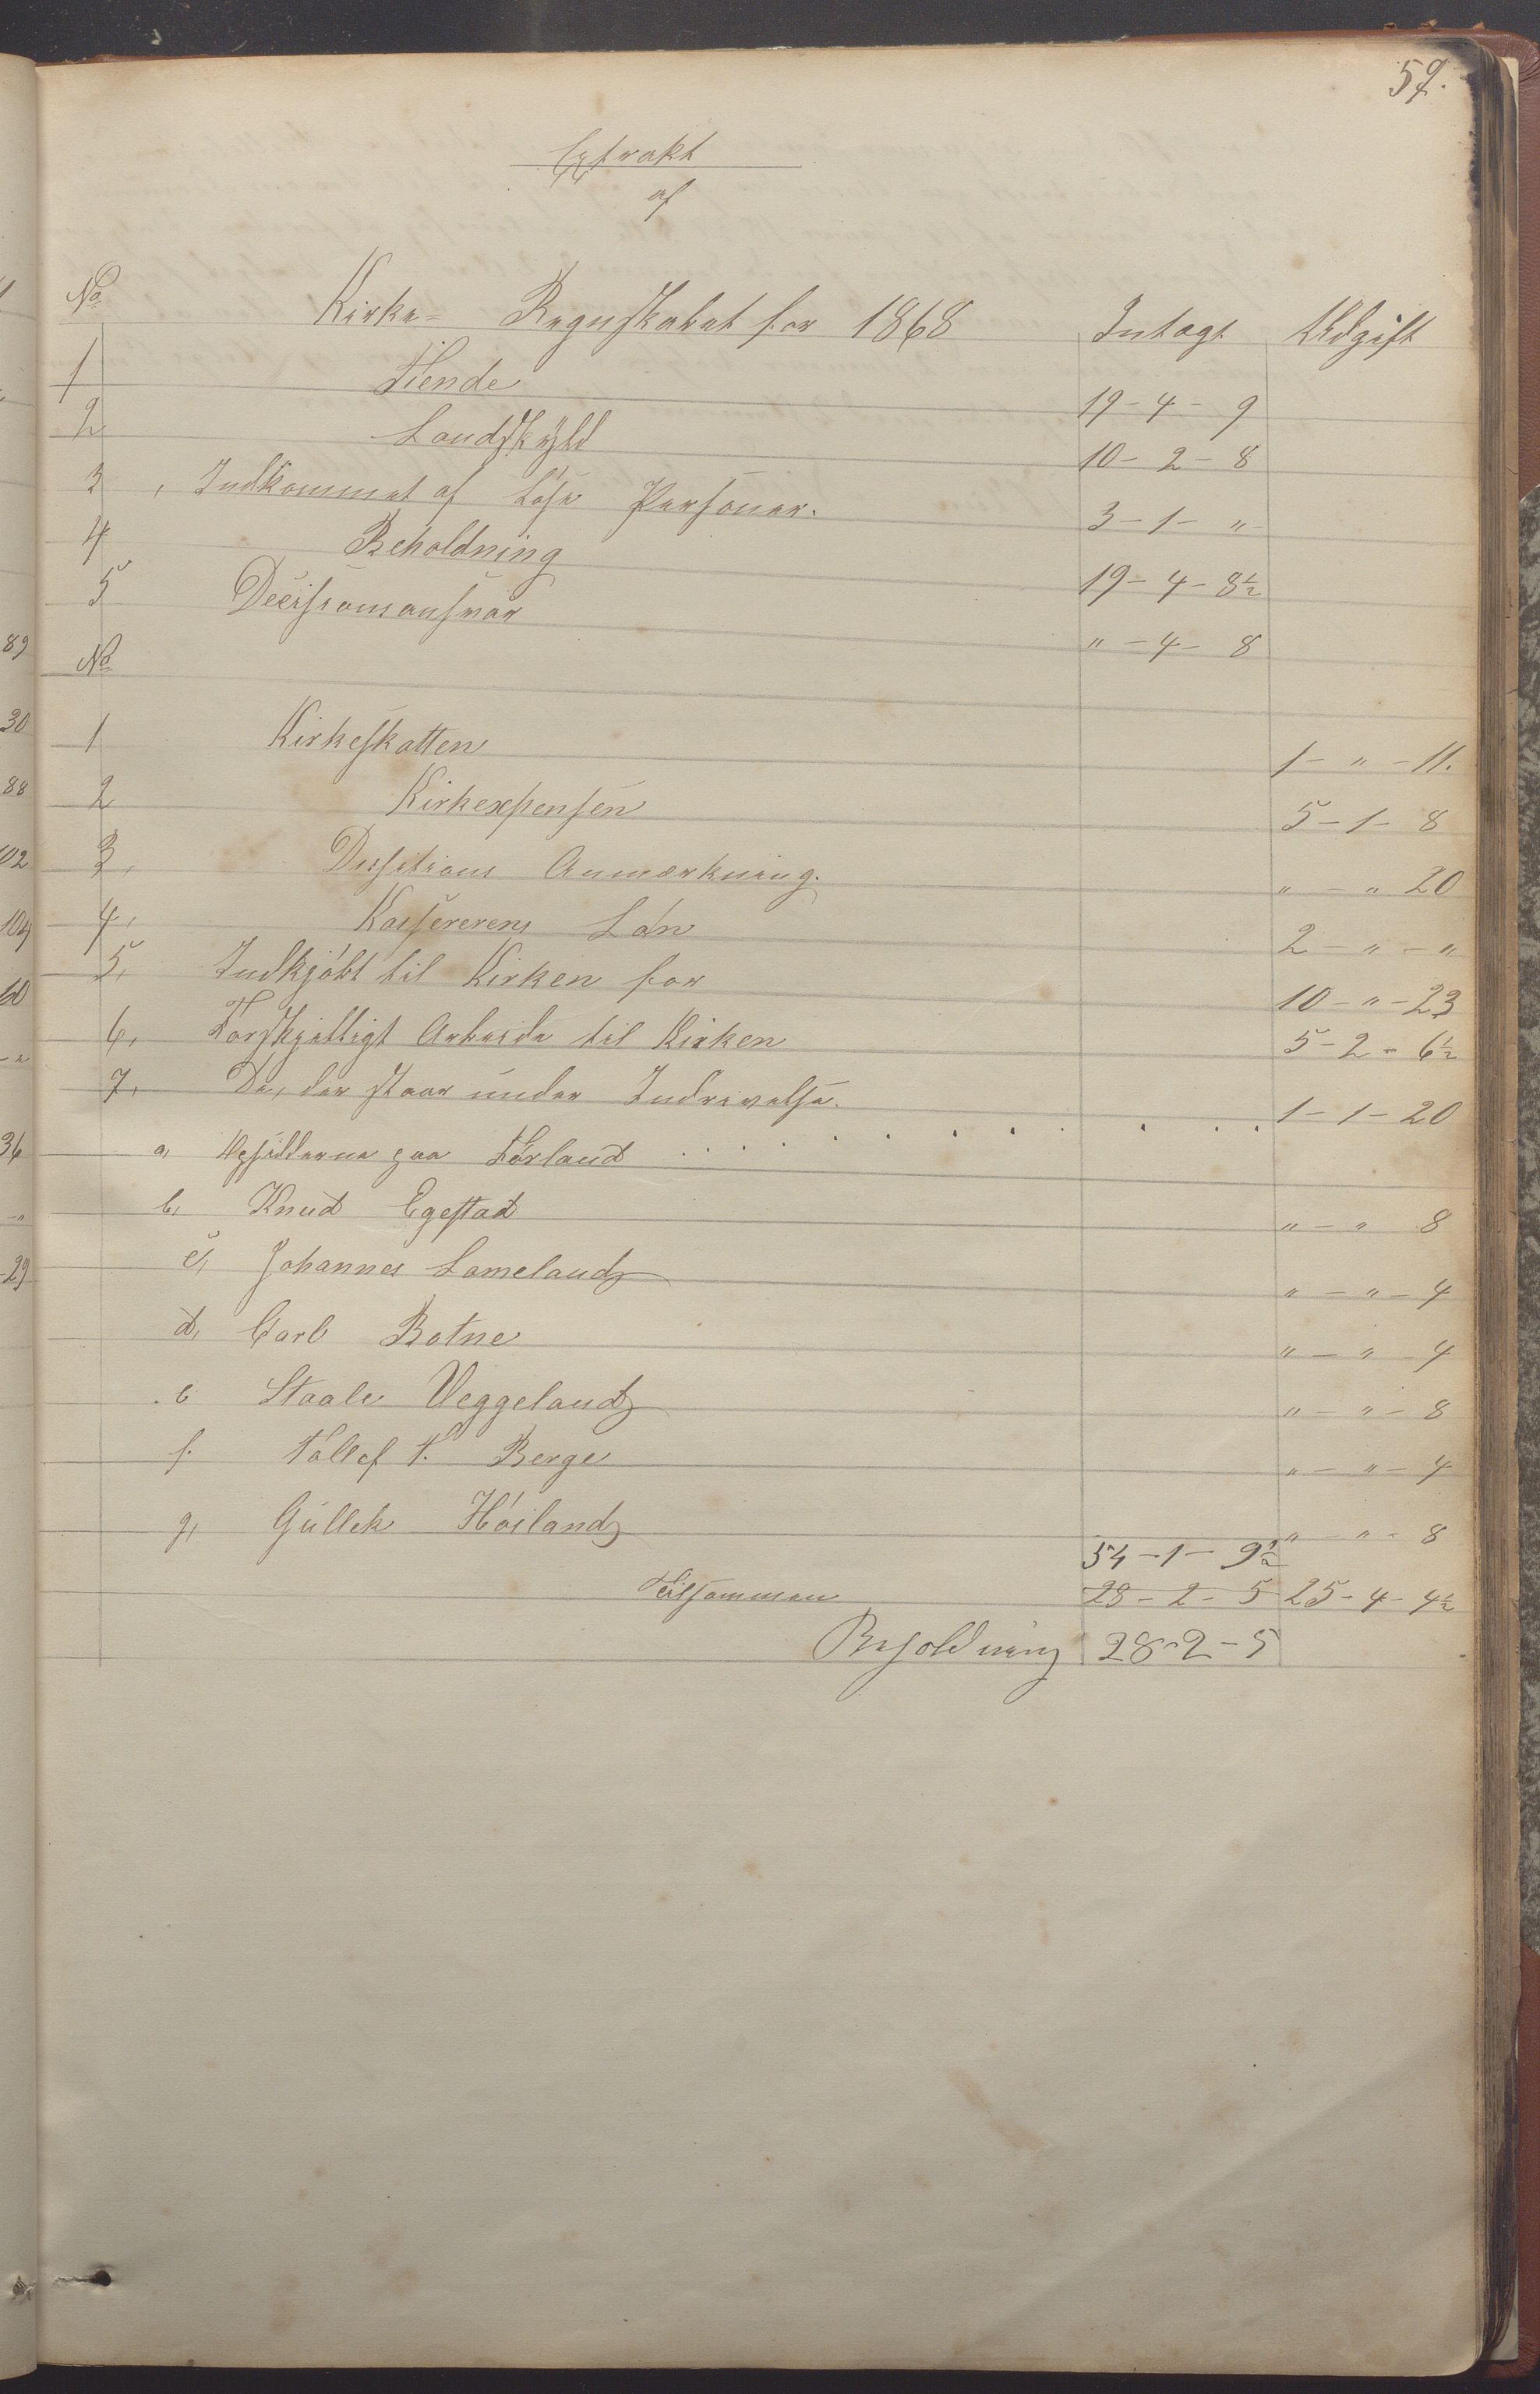 59.
Extrakt
af
No Kirke= Regnskabet for 1868 Intægt Udgift
1 Tiende 19-4-9
2 Landskyld 10-2-8
3, Indkommet af Løse Personer. 3-1-"
4 Beholdning 19-4-8½
5 Decisionsansvar "-4-8
No
1 Kirkeskatten 1-"-11.
2 Kirkexpensen 5-1-8
3, Anmærkning. "-" 20
4, Kassererens Løn 2-"-"
5, Indkjøbt til Kirken for 10-"-23
6, Forskjelligt Arbeide til Kirken 5-2-6½
7, De, der staar under Inddrivelse. 1-1-20
a, Opsidderne paa Førland
b, Knud Egestad "-" 8
c, Johannes Lomeland "-"-4
d, Carl Botne "-"-4
e Staale Veggeland "-"-8
f. Tollef T. Berge "-"-4
g, Gullek Høiland "-"-8
54-1-9½
Tilsammen 28-2-5 25-4-4½
Beholdning 28-2-5
89
30
88
102
104
60
36
29